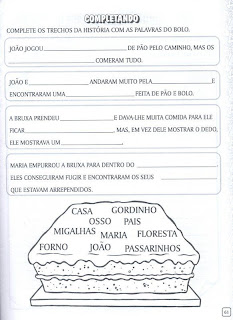 COMPLETANDO
COMPLETE OS TRECHOS DA HISTÓRIA COM AS PALAVRAS DO BOLO.
JOÃO JOGOU____________________DE PÃO PELO CAMINHO, MAS OS
____________________COMERAM TUDO.
JOÃO E____________________ANDARAM MUITO PELA____________________E
ENCONTRARAM UMA____________________FEITA DE PÃO E BOLO.
A BRUXA PRENDEU____________________E DAVA-LHE MUITA COMIDA PARA ELE
FICAR____________________, MAS, EM VEZ DELE MOSTRAR O DEDO,
ELE MOSTRAVA UM____________________.
MARIA EMPURROU A BRUXA PARA DENTRO DO ____________________
ELES CONSEGUIRAM FUGIR E ENCONTRARAM OS SEUS ____________________
QUE ESTAVAM ARREPENDIDOS.
CASA GORDINHO
OSSO PAIS
MIGALHAS MARIA FLORESTA
FORNO JOÃO PASSARINHOS